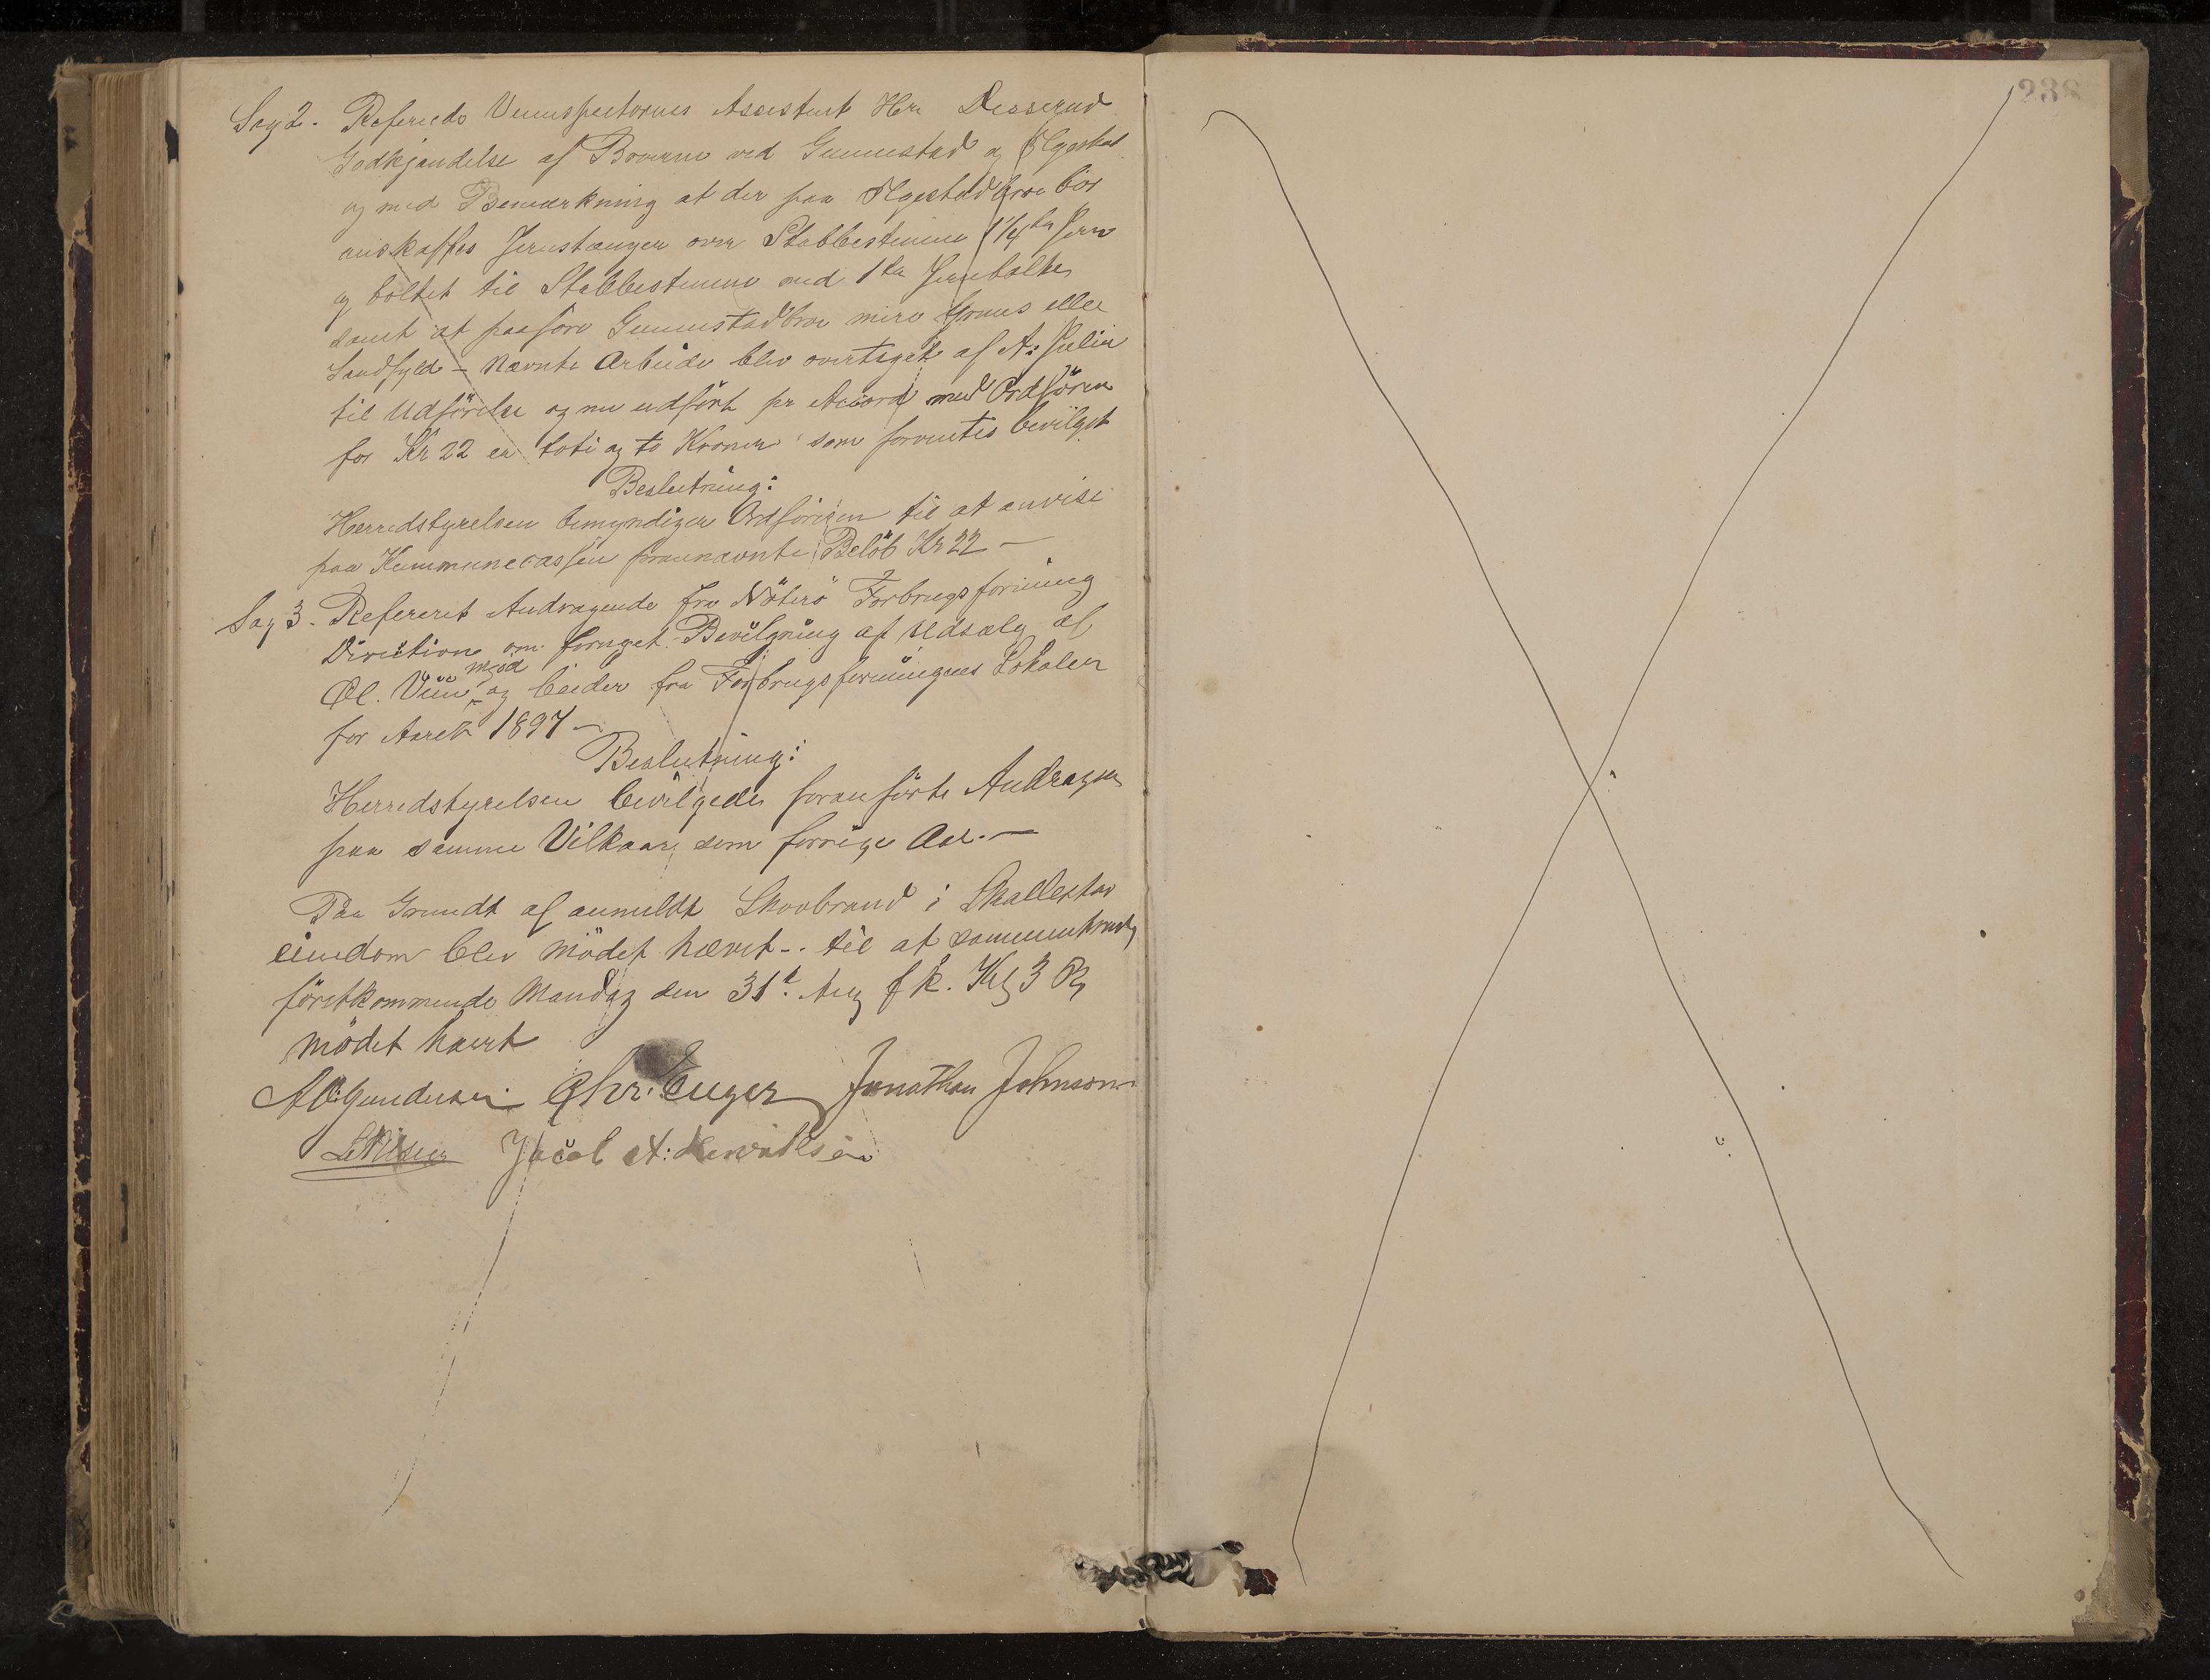 Sag 2. Refereredes Assistent Herr Disserud
Godkjendelse af Broerne ved Gunnestad og Elgestad
og med Bemærkning at der paa Elgestadbroe bör
anskaffes Jernstænger over Stabbestenene 1 1/4 Jern
og boltet til Stabbestenene med 1 Jernbolter
samt at paaföre Gunnestadbroe mere Gruus eller
Sandfyld – Nævnte Arbeide blev overtaget af A: Julin
til Udförelse og nu udfört pr Accord med Ordföreren
for Kr 22 er toti og to Kroner som forventes bevilget
Beslutning:
Herredstyrelsen bemyndiger Ordföreren til at anvise
paa Kommunecassen frannævnte Belöb Kr 22 –
Sag 3. Refereret Andragende fra Nöterö Forbrugsforening
Direction om fornyet Bevilgning af Udsalg af
Øl. Viin mjød og Ceider fra Forbrugsforeningens Lokaler
for Aaret 1897 –
Beslutning:
Herredstyrelsen bevilgede foranförte Andragen
paa samme Vilkaar som forrige Aar. –
Paa Grundt af anmeldt Skovbrand i Skallestad
eiendom blev Mödet hævet -. til at sammentræde
förstkommende Mandag den 31t. Aug f k. Kl 3 Em
Mödet hævt
A C. Gundersen Chr. Unger Jonathan Johnson
L Nilsen Jacob A: Henriksen
238